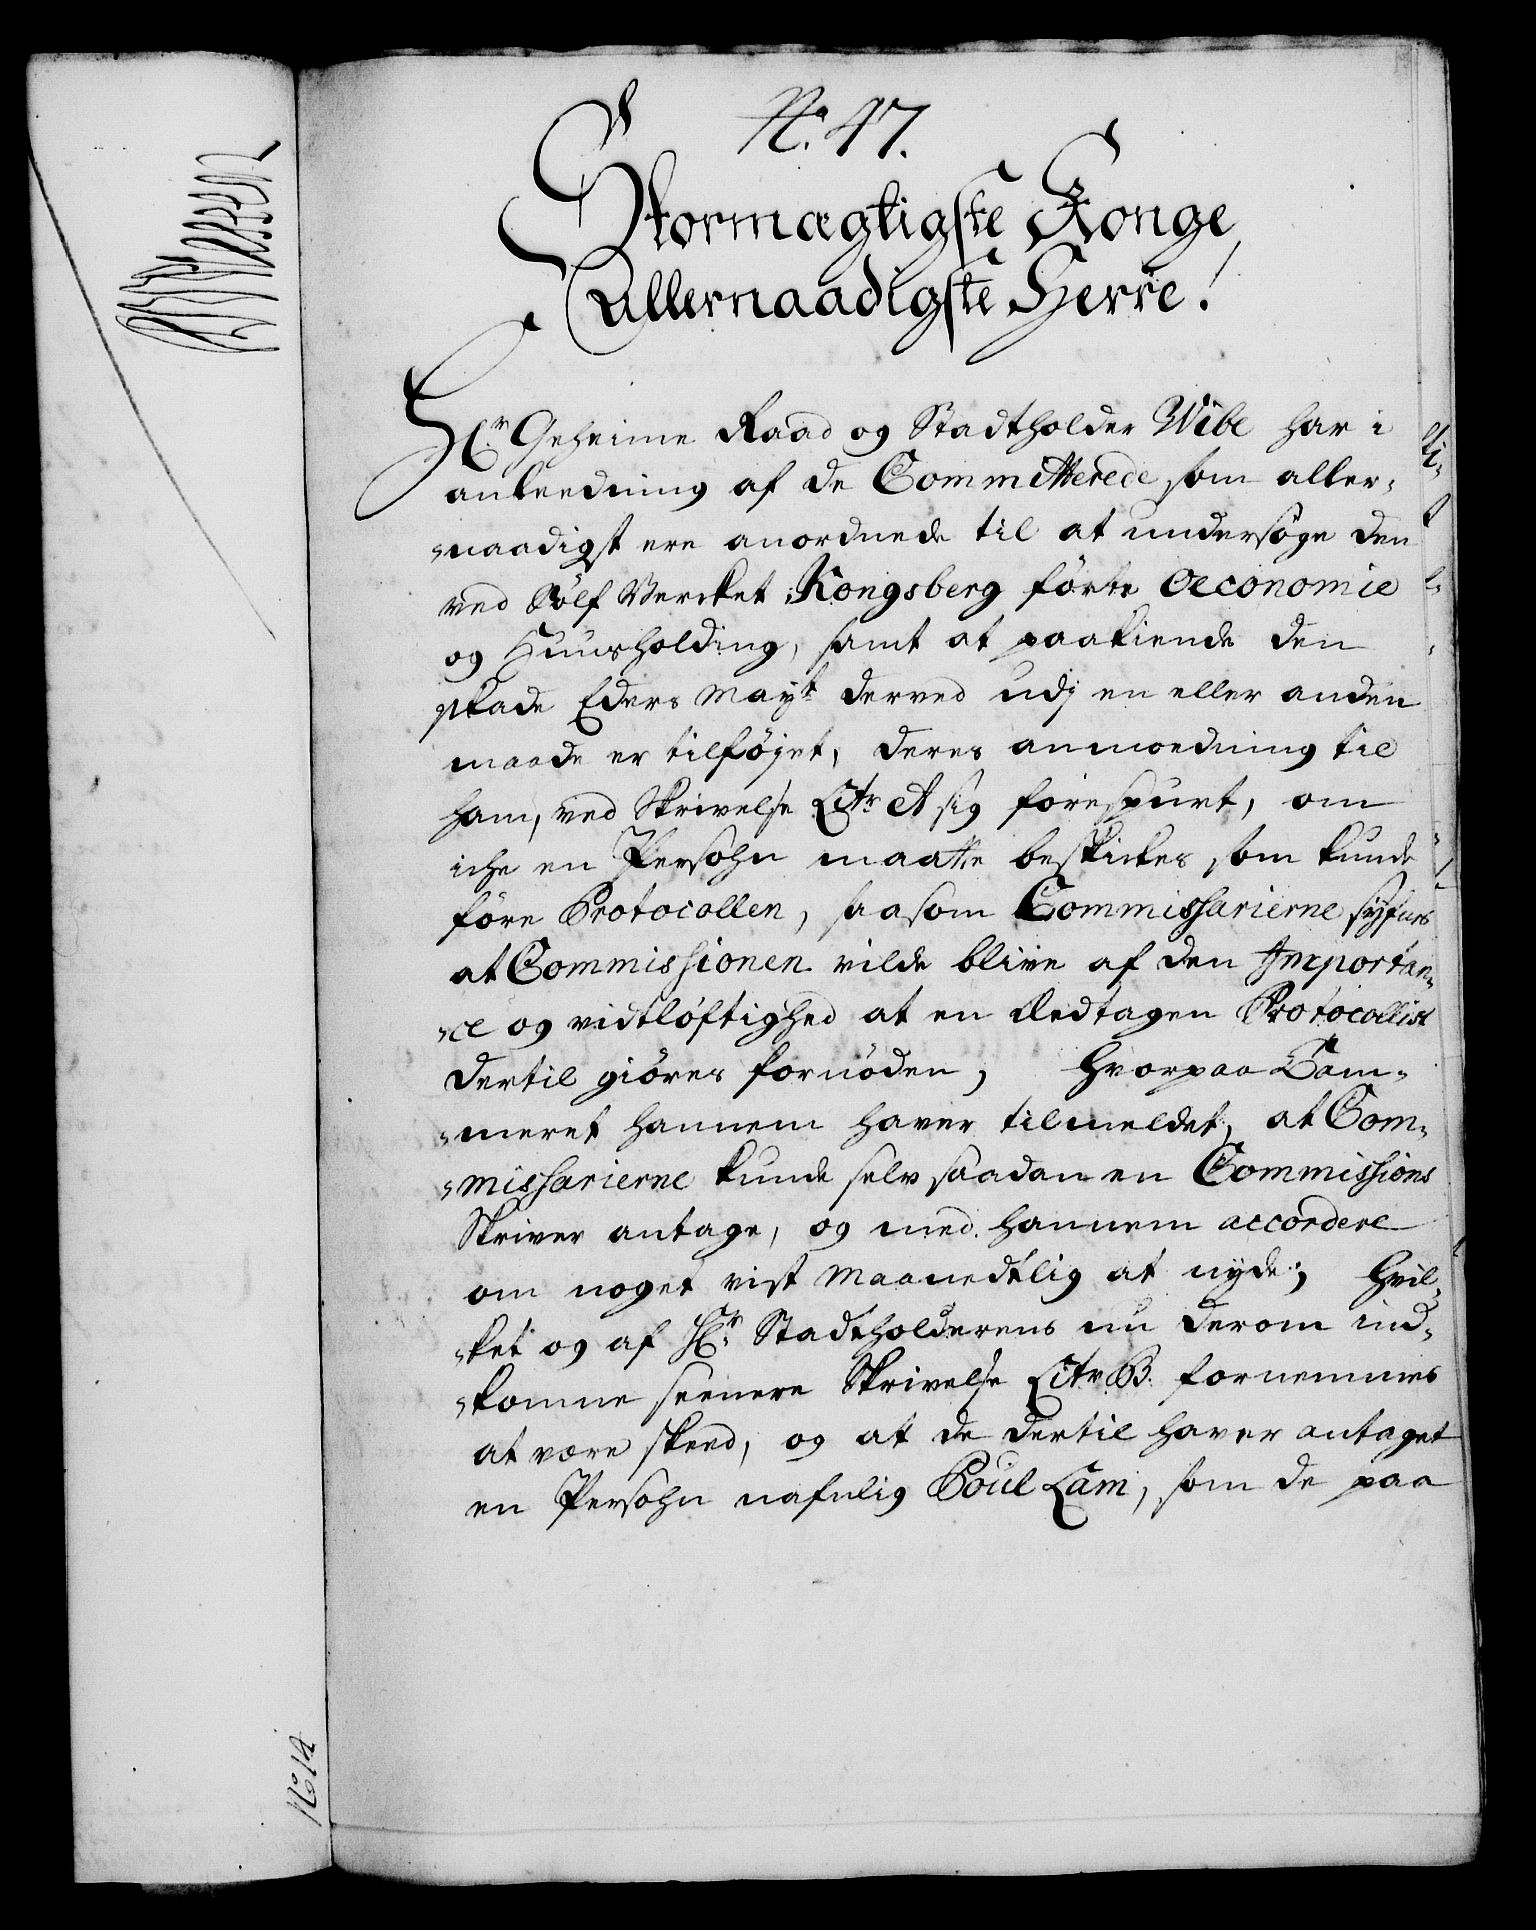 No. 47.
Stormægtigste Konge
Allernaadigste Herre!
Hr. Geheime Raad og Stadtholder Wibe har i
anleedning af de Committerede som aller-
-naadigst ere anordnede til at undersøge den
ved Sølf Vercket Kongsberg førte Oeconomie
og Huusholding, samt at paakiende den
skade Eders Mayt. derved udj en eller anden
maade er tilføjet, deres anmoedning til
ham, ved Skrivelse Litr A sig forespurt, om
iche en Persohn maatte beskickes som kunde
føre Protocollen, saasom Commissarierne syfnes
at Commissionen vilde blive af den Importan-
-ce og vidtløftighed at en Eedtagen Protocollist
dertil giøres fornøden, hvorpaa Cam-
-meret hannem haver tilmeldet, at Com-
-missarierne kunde selv saadan en Commissions
Skriver antage, og med hannem accordere
om noget vist Maanedtlig at nyde; hvil-
-ket og af Hr. Stadtholderens nu derom ind-
-komne seenere Skrivelse Litr B. fornemmes
at være skeed, og at de dertil haver antaget
en Persohn nafnlig Poul Lam, som de paa
No 14